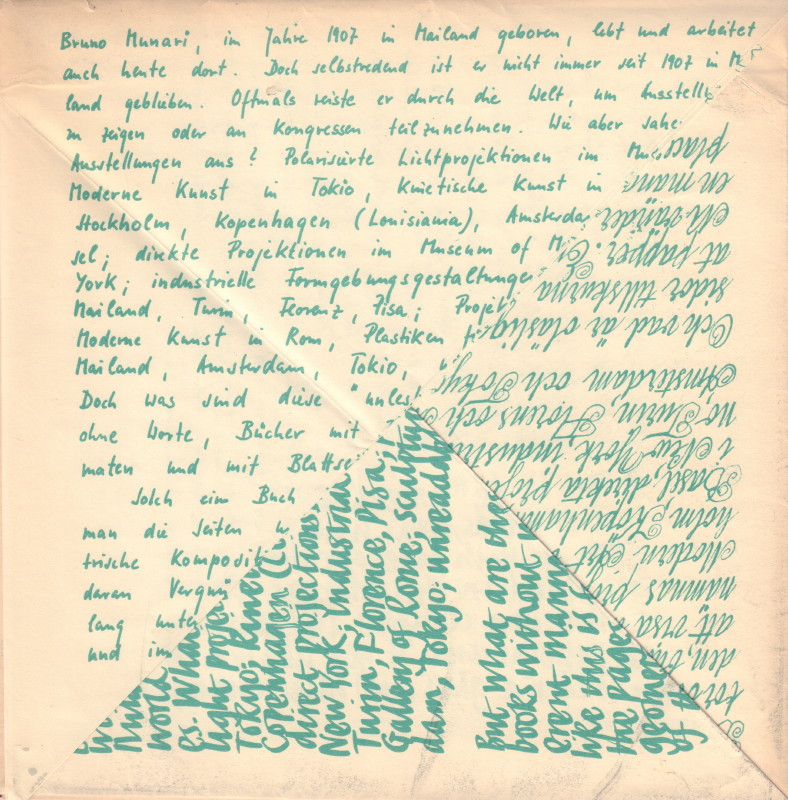 Bruno Munari, im Jahre 1907 in Mailand geboren, lebt und arbeitet
auch heute dort. Doch selbstredend ist er nicht immer seit 1907 in M
land geblieben. Oftmals reiste er durch die Welt, um Ausstell
zu zeigen oder an Kongressen teilzunehmen. Wie aber sahe
Ausstellungen aus? Polarisierte Lichtprojektionen im Mu
Moderne Kunst in Tokio, Kinetische Kunst in
Stockholm, Kopenhagen (Louisiania), Amsterda
sel; direkte Projektionen im Museum of M
York; industrielle Formgebungsgestaltunge
Mailand, Turin, Florenz, Pisa; Projek
Moderne Kunst in Rom, Plastiken f
Mailand, Amsterdam, Tokio,
Doch was sind diese "unles
ohne Worte, Bücher mit
maten und mit Blattse
Solch ein Buch
man die Seiten
trische Kompositi
daran Vergnü
lang unte
und im
world
es. Wha
light proje
Tokyo; Kine
Copenhagen (L
direct projections
New York; industria
Turin, Florence, Pisa;
Gallery of Rome; sculptu
dam, Tokyo; unreadab
But what are the
books without w
erent mann
like this is
the page
geome
of th
den
att visa
namnas pro
Modern Art
holm, Kopenham
Basel; direkta proje
i New York industri
no, Turin, Florens och
Amsterdam och Tokyo
Och vad är oläslig
sidor tillskurna
at papper.
en mang
place